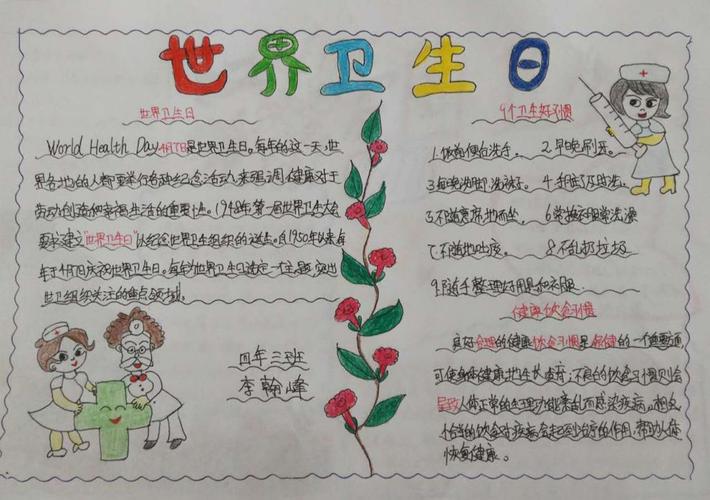 世界卫生日
世界卫生日
World Health Day 4月7日是世界卫生日。每年的这一天,世
界各地的人都要举行各种纪念活动,来强调健康对于
劳动创造和幸福生活的重要性。1948年第一届世界卫生大会
要求建立"世界卫生日"以纪念世界卫生组织的诞生。自1950年以来每
年于4月7日庆祝世界卫生日。每年为世界卫生日选定一主题,突出
世卫组织关注的重点领域。
四年三班
李翰峰
9个卫生好习惯
1.饭前便后洗手。 2.早晚刷牙。
3.每晚洗脚洗袜子。 4.手脏了及时洗。
5.不随意席地而坐。 6常换衣服常洗澡
7.不随地吐痰。 8不乱扔垃圾
9.随手整理好用具和衣服
健康饮食习惯
良好合理的健康饮食习惯是保健的一个重要方面
可使身体健康地生长、发育;不良的饮食习惯则会
导致人体正常的生理功能紊乱而感染疾病。相反
恰当的饮食对疾病会起到治疗的作用,帮助人体
恢复健康。